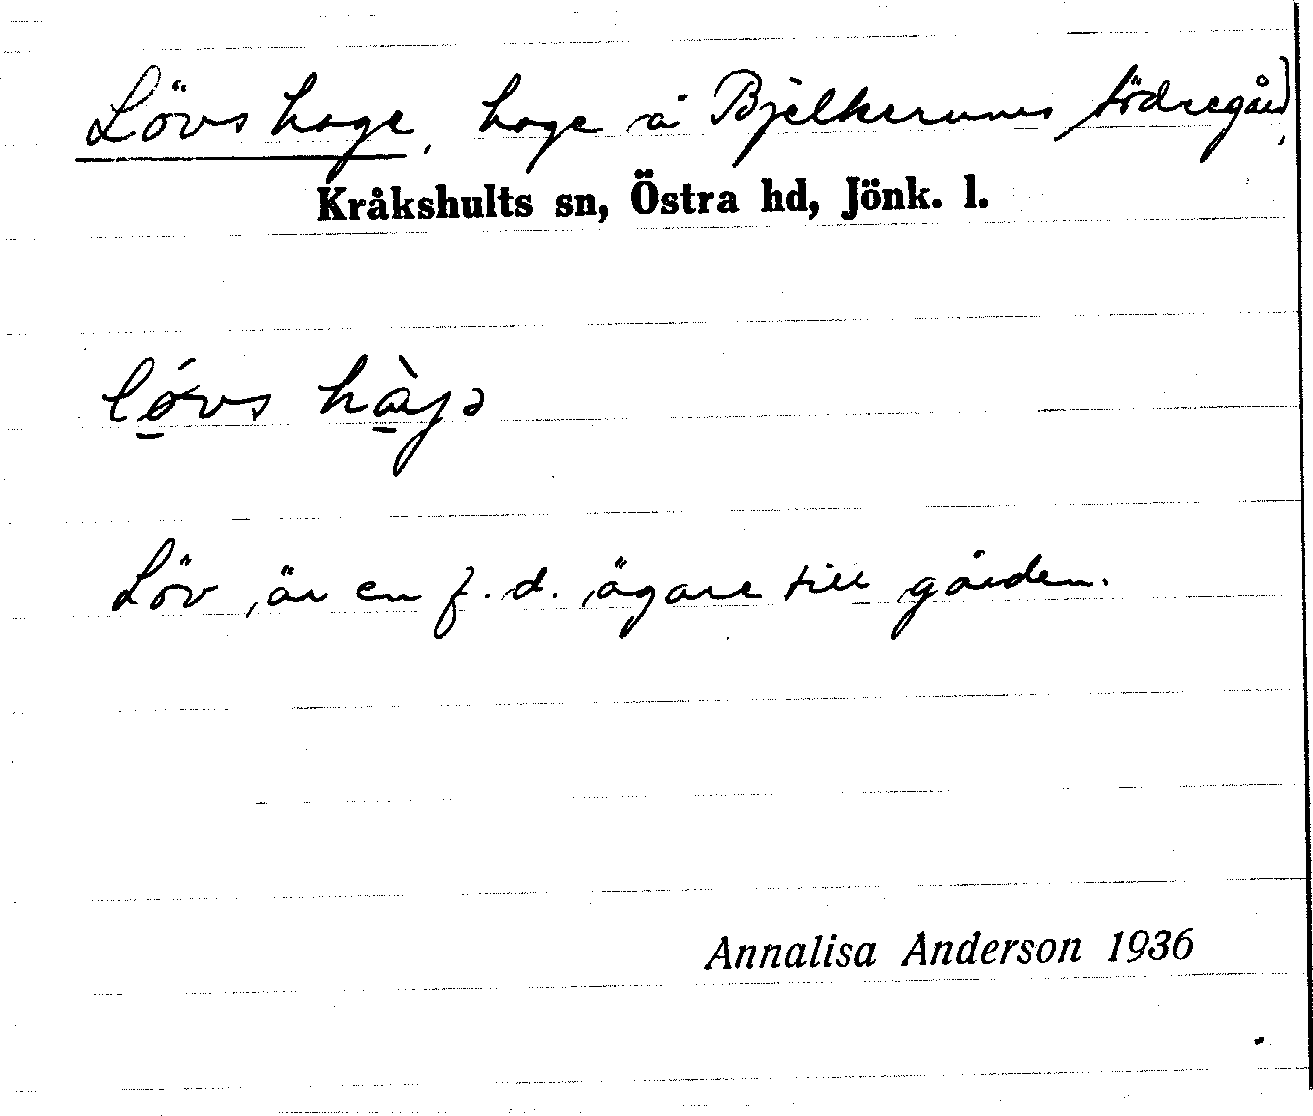 Lövs hage, hage å Bjelkerums södregård,
Kråkshults sn, Östra hd, Jönk. l.
Löv, är en f. d. ägare till gården.
Annalisa Anderson 1936